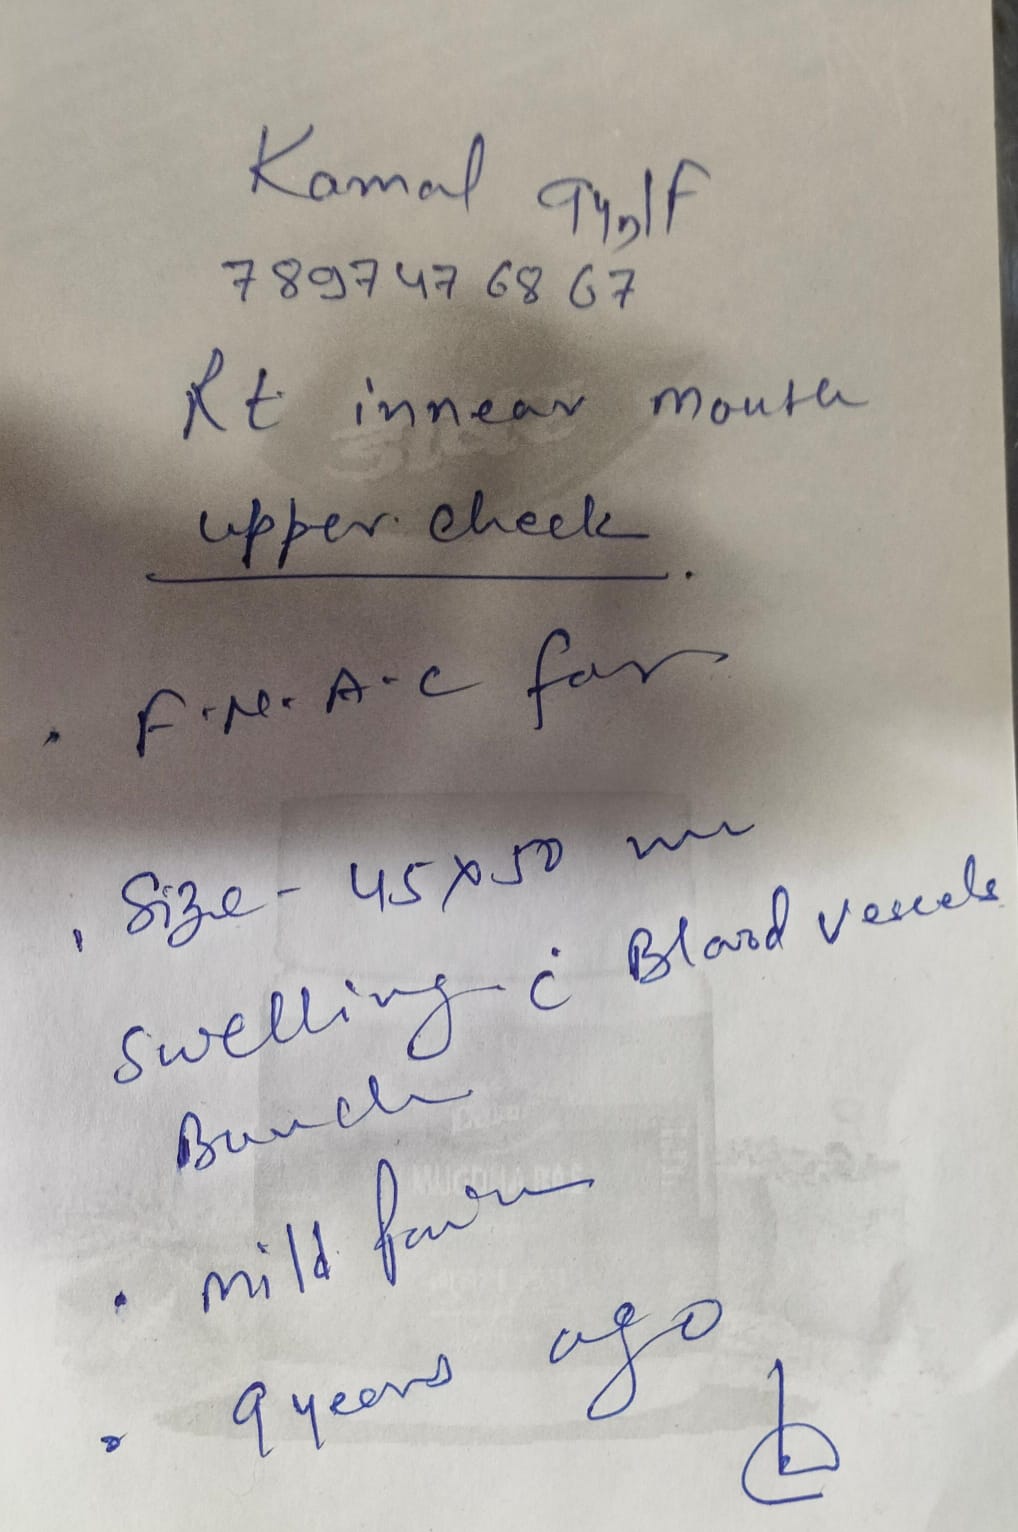 Kamal 9y/F
7897476867
Rt innear mouth
upper cheek.
• F.N.A.C for
• Size - 45x50 mm
Swelling c̄ Blood vessels
Bunch
• mild pain
• 9 years ago